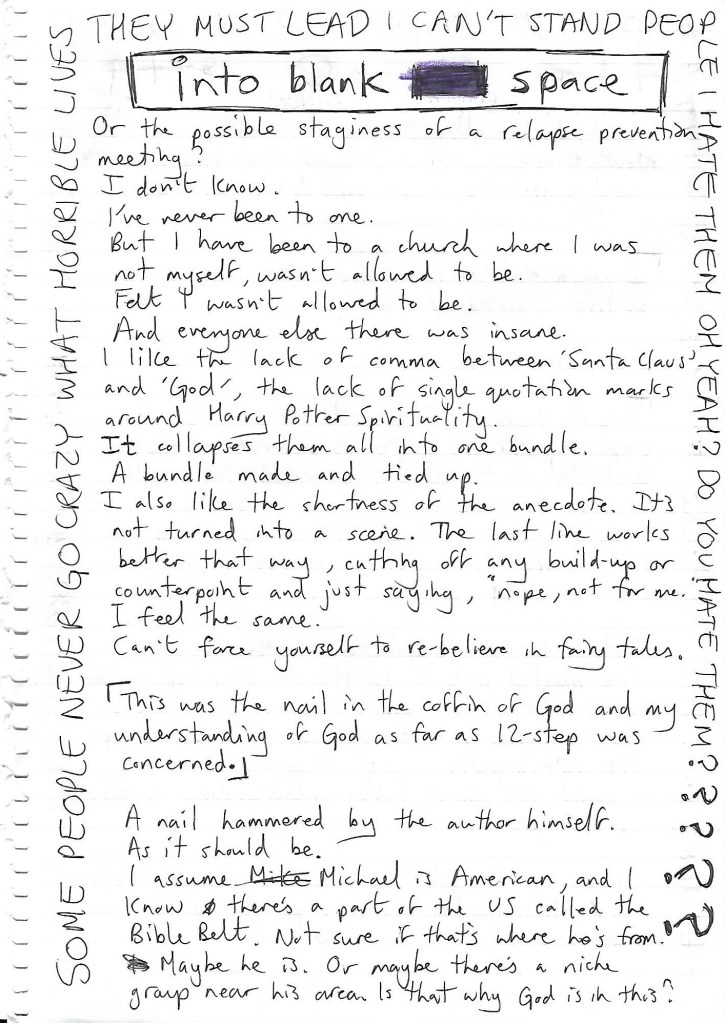 SOME PEOPLE NEVER GO CRAZY WHAT HORRIBLE LIVES
THEY MUST LEAD I CAN'T STAND PEOP
LE I HATE THEM OH YEAH? DO YOU HATE THEM??????
into blank space
Or the possible staginess of a relapse prevention
meeting?
I don't know.
I've never been to one.
But I have been to a church where I was
not myself, wasn't allowed to be.
Felt I wasn't allowed to be.
And everyone else there was insane.
I like the lack of comma between 'Santa Claus'
and 'God', the lack of single quotation marks
around Harry Potter Spirituality.
It collapses them all into one bundle.
A bundle made and tied up.
I also like the shortness of the anecdote. It's
not turned into a scene. The last line works
better that way, cutting off any build-up or
counterpoint and just saying, "nope, not for me.
I feel the same.
Can't force yourself to re-believe in fairy tales.
「This was the nail in the coffin of God and my
understanding of God as far as 12-step was
concerned.」
A nail hammered by the author himself.
As it should be.
I assume Mike Michael is American, and I
know there's a part of the US called the
Bible Belt. Not sure if that's where he's from.
Maybe he is. Or maybe there's a niche
group near his area. Is that why God is in this?